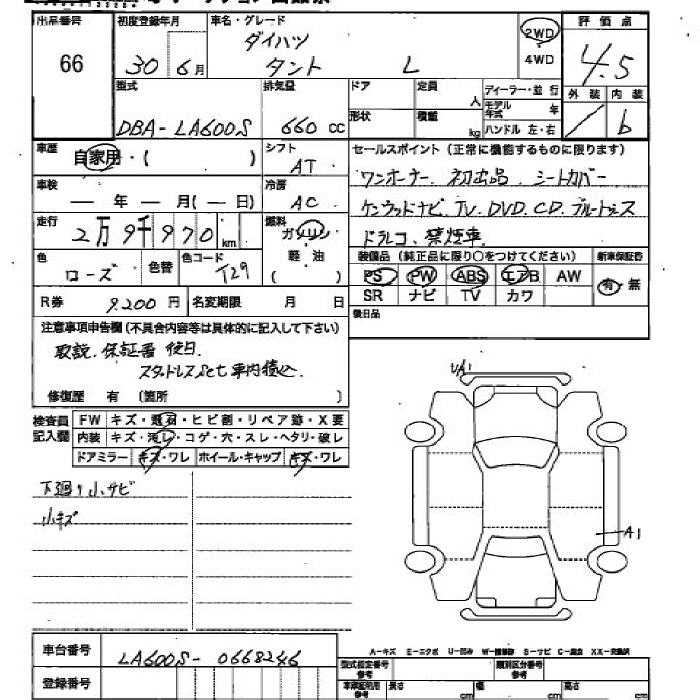 出品番号
66
初度登録年月
30年 6月
車名・グレード
ダイハツ
タント L
2WD
4WD
評価点
4.5
外装 内装
／ b
型式
DBA-LA600S
排気量
660 cc
ドア
定員
人
形状
積載
kg
ディーラー・並行
モデル年式 年
ハンドル 左・右
車歴
自家用・( )
シフト
AT
車検
— 年 — 月(— 日)
冷房
AC
走行
2万9千970km
燃料
ガソリン
軽・油
( )
色
ローズ
色替
色コード
T29
セールスポイント(正常に機能するものに限ります)
ワンオーナー. 初出品. シートカバー
ケンウッドナビ. TV. DVD. CD. ブルートゥース
ドラレコ. 禁煙車.
装備品(純正品に限り○をつけてください)
新車保証書
PS PW ABS エアB AW
SR ナビ TV カワ
有・無
R券 9200円
名変期限 月 日
後日品
注意事項申告欄(不具合内容等は具体的に記入して下さい)
取説. 保証書 後日.
スタッドレスSet 車内積込.
修復歴 有 (箇所 )
検査員記入欄
FW キズ・飛石・ヒビ割・リペア跡・X要
内装 キズ・汚レ・コゲ・穴・スレ・ヘタリ・破レ
ドアミラー キズ・ワレ ホイール・キャップ キズ・ワレ
下廻り小サビ
小キズ
A1
車台番号
LA600S-0668246
登録番号
A-キズ E-エクボ U-凹み W-補修跡 S-サビ C-腐食 XX-交換済
型式指定番号
参考
類別区分番号
参考
車庫証明用
参考
長さ cm
幅 cm
高さ cm